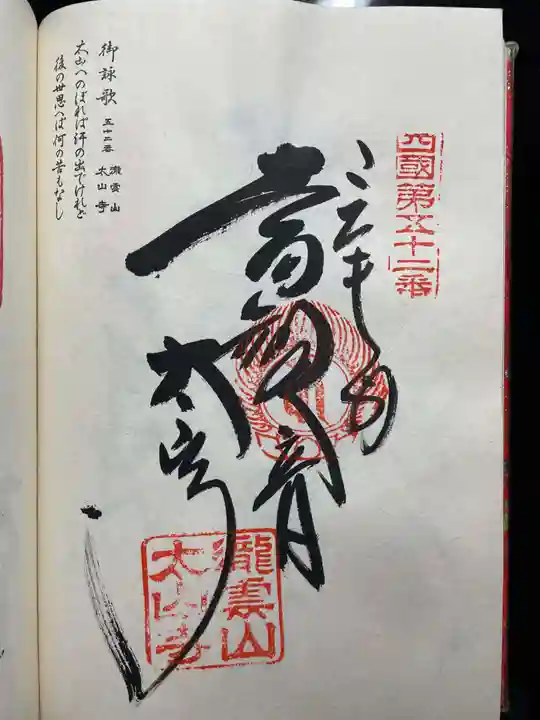 四國第五十二番
奉
十一面観音
太山寺
瀧雲山
太山寺
御詠歌 五十二番 瀧雲山 太山寺
太山へのぼれば汗の出でけれど
後の世思へば何の苦もなし